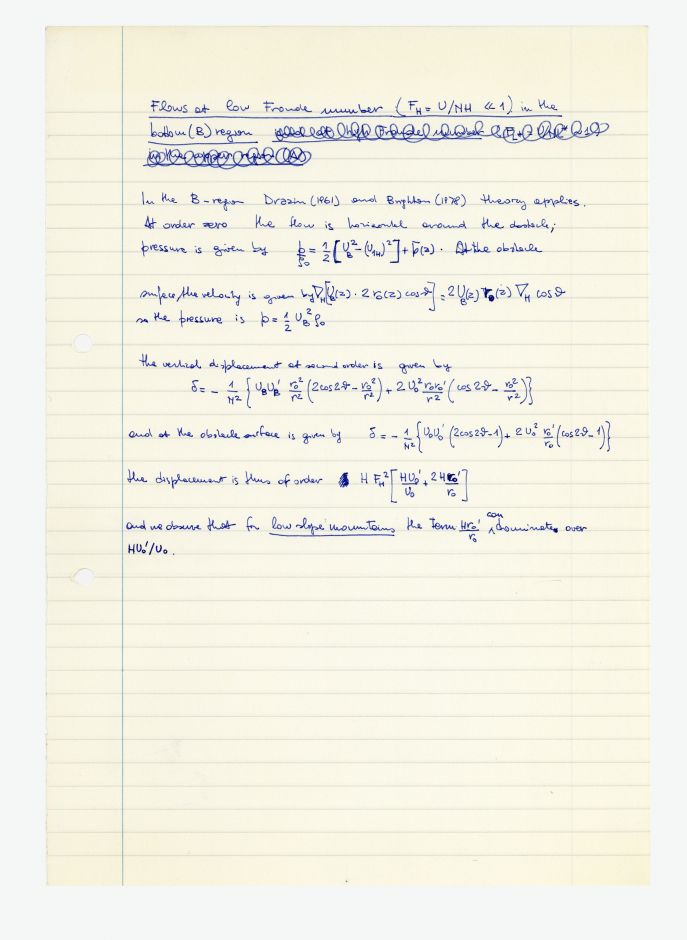 Flows at low Froude number (F_H = U/NH ≪ 1) in the
bottom (B) region
In the B-region Drazin (1961) and Brighton (1978) theory applies.
At order zero the flow is horizontal around the obstacle;
pressure is given by p/ρ₀ = 1/2 [U_B² - (U_1H)²] + p̄(z). At the obstacle
surface, the velocity is given by ∇_H [U_B(z) · 2 r₀(z) cos ϑ] = 2 U_B(z) r₀(z) ∇_H cos ϑ
so the pressure is p = 1/2 U_B² ρ₀
the vertical displacement at second order is given by
δ = - 1/N² { U_B U_B' r₀²/r² (2cos2ϑ - r₀²/r²) + 2 U₀² r₀r₀'/r² (cos2ϑ - r₀²/r²) }
and at the obstacle surface is given by δ = - 1/N² { U₀U₀' (2cos2ϑ-1) + 2 U₀² r₀'/r₀ (cos2ϑ-1) }
the displacement is thus of order H F_H² [ HU₀'/U₀ + 2H r₀'/r₀ ]
and we observe that for low slope mountains the term Hr₀'/r₀ can dominate over
HU₀'/U₀.